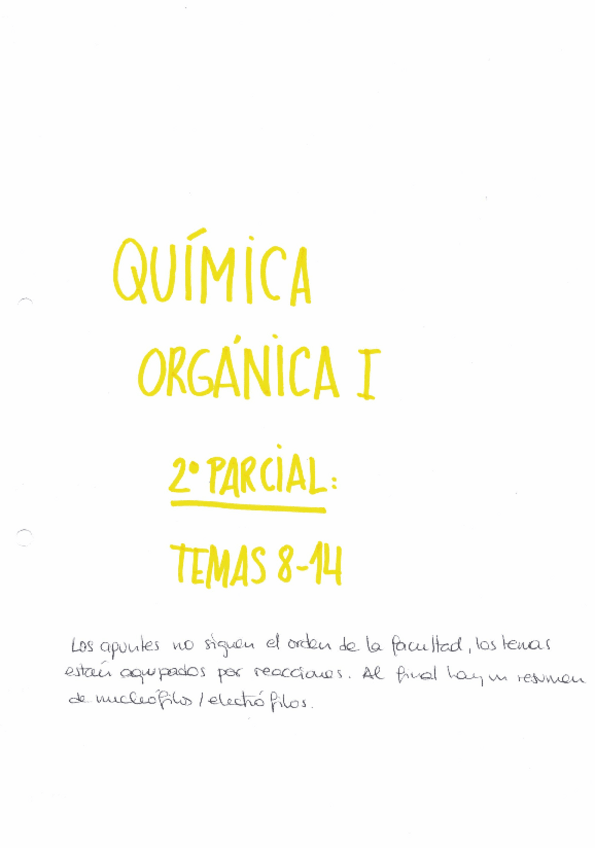 QUÍMICA
ORGÁNICA I
2º PARCIAL:
TEMAS 8-14
Los apuntes no siguen el orden de la facultad, los temas
están agupados por reacciones. Al final hay un resumen
de nucleófilos / electrófilos.